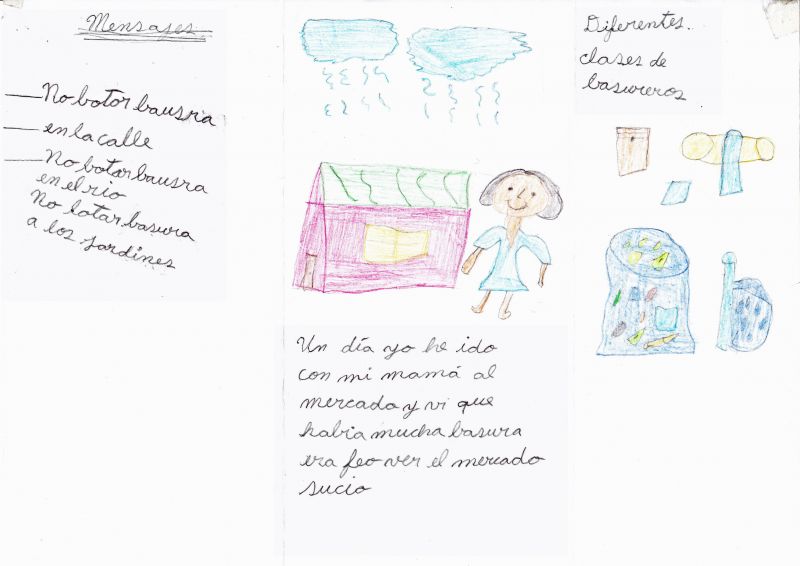 Mensajes
No botar bausra
en la calle
No botar bausra
en el rio
No botar basura
a los jardines
Un día yo he ido
con mi mamá al
mercado y vi que
habia mucha basura
era feo ver el mercado
sucio
Diferentes.
clases de
basureros